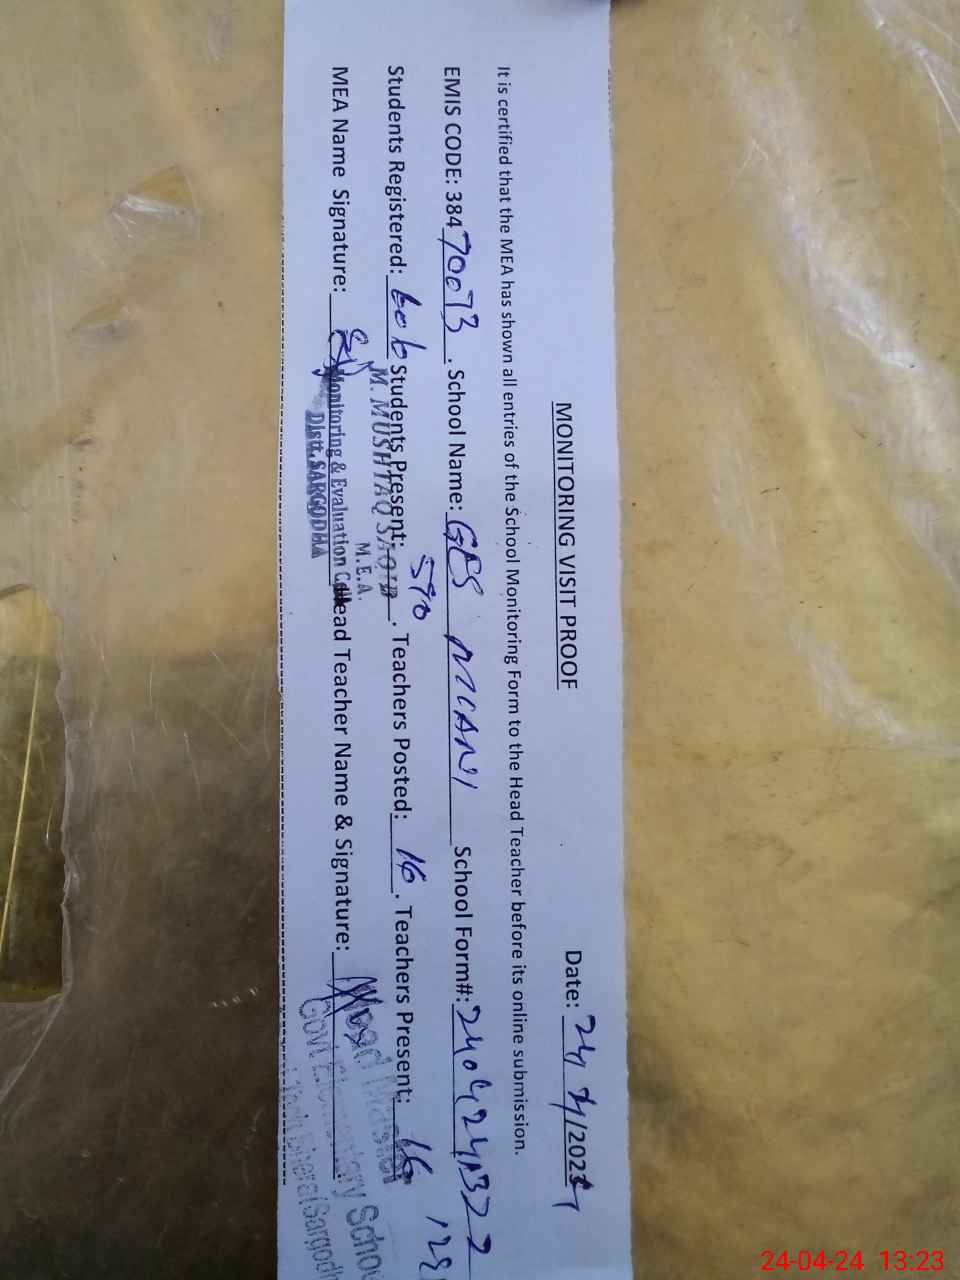 MONITORING VISIT PROOF Date: 24/4/2024
It is certified that the MEA has shown all entries of the School Monitoring Form to the Head Teacher before its online submission.
EMIS CODE: 38470073. School Name: GES MIANI School Form#:
Students Registered: 606 Students Present: 590. Teachers Posted: 16. Teachers Present: 16
M. MUSHTAQ SAQIB
M.E.A.
MEA Name Signature: Head Teacher Name & Signature:
Monitoring & Evaluation Cell
Distt. SARGODHA
Head Master
Govt Elementary School
24-04-24 13:23